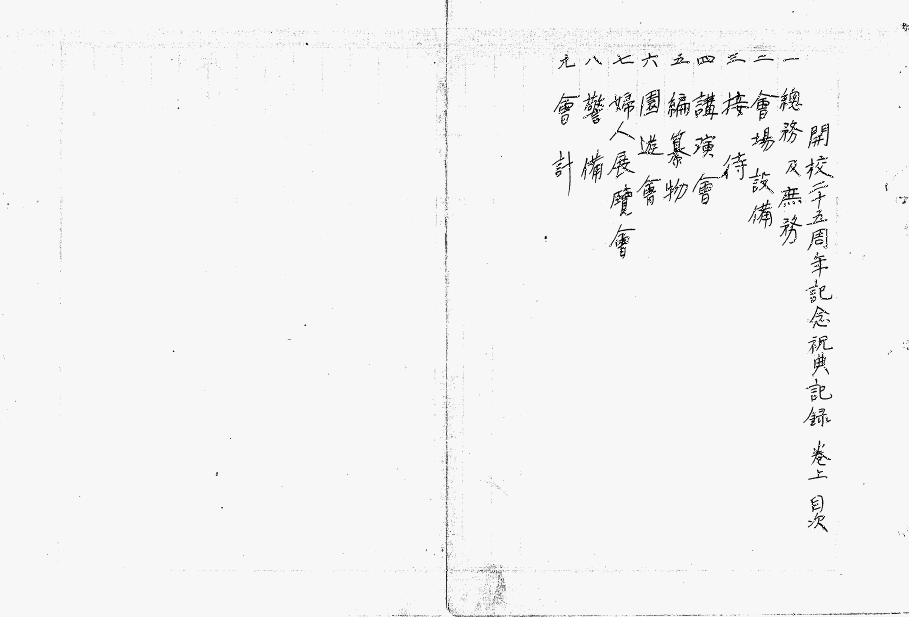 開校二十五周年記念祝典記録 卷上 目次
一 總務及庶務
二 會場設備
三 接待
四 講演會
五 編纂物
六 園遊會
七 婦人展覽會
八 警備
九 會計